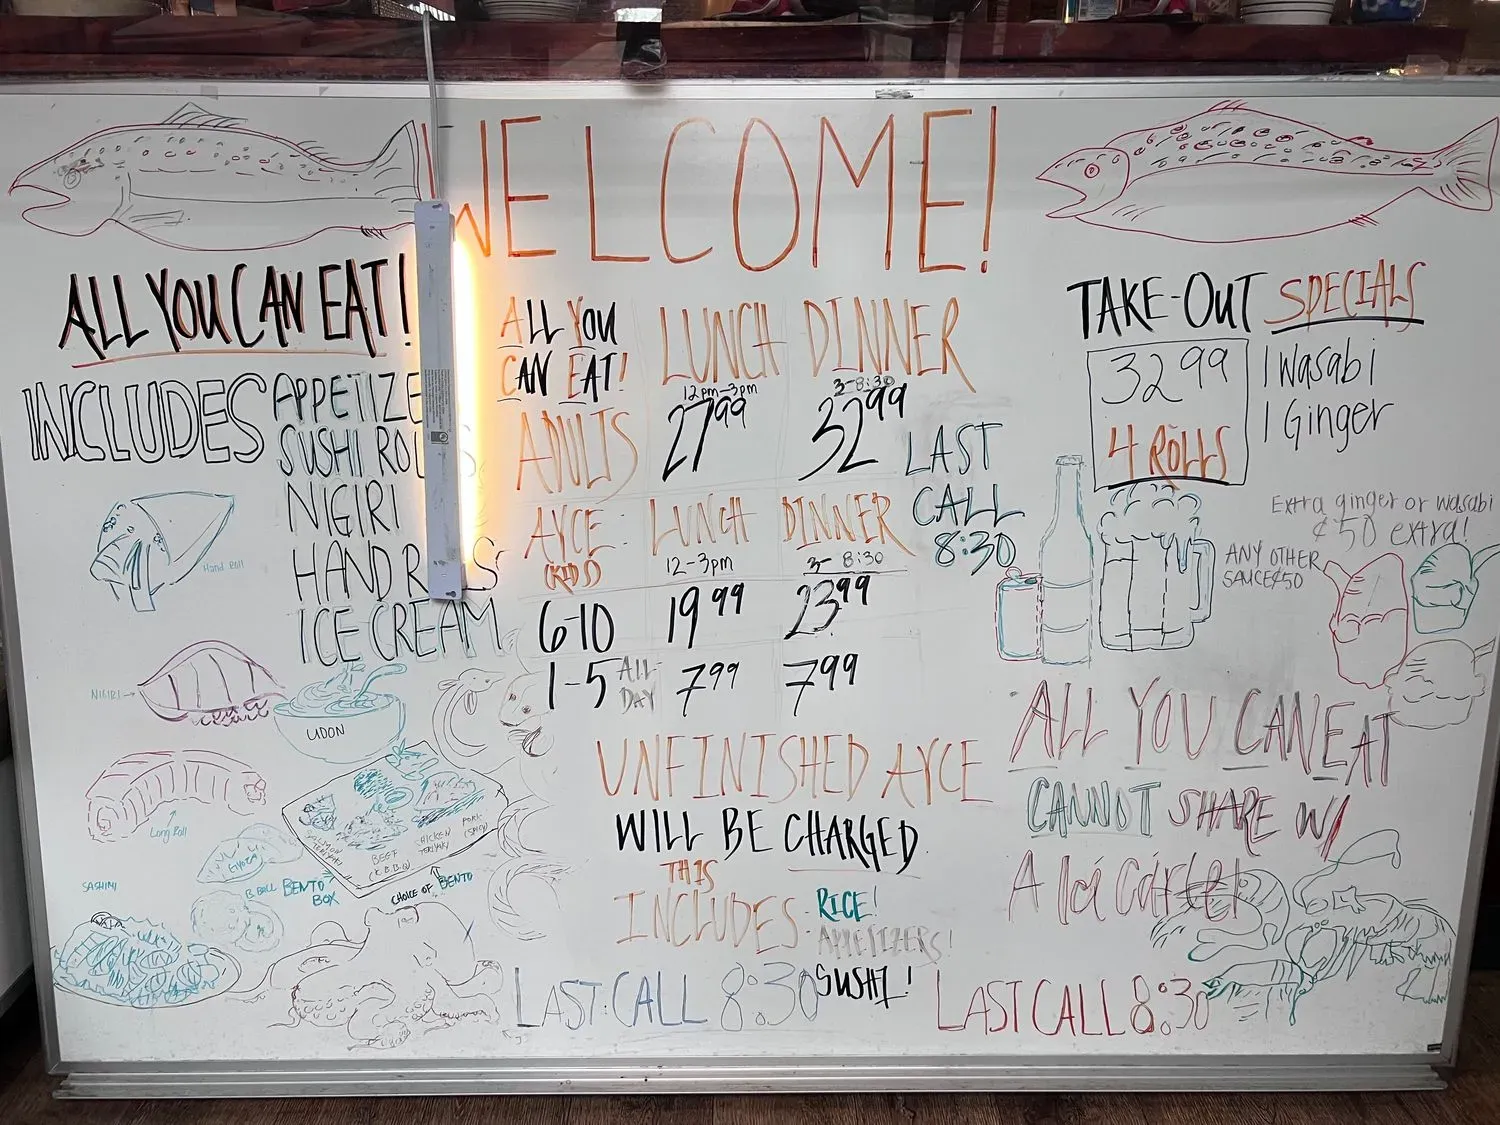 WELCOME!
ALL YOU CAN EAT!
INCLUDES
APPETIZE
SUSHI ROL
NIGIRI
HAND R S
ICE CREAM
Hand Roll
NIGIRI →
UDON
Long Roll
GYOZA
SASHIMI
SALMON TERIYAKI
BEEF
(K.B.B.Q)
CHICKEN
TERIYAKI
PORK
(SPICY)
BENTO
BOX
CHOICE OF BENTO
ALL YOU
CAN EAT!
LUNCH
12pm-3pm
DINNER
3-8:30
ADULTS
27 99
32 99
AYCE:
(KIDS)
LUNCH
12-3pm
DINNER
3-8:30
6-10
19 99
23 99
1-5 ALL-
DAY
7 99
7 99
LAST
CALL
8:30
UNFINISHED AYCE
WILL BE CHARGED
THIS
INCLUDES-
RICE!
APPETIZERS!
SUSHI!
LAST:CALL 8:30
TAKE-OUT SPECIALS
32 99
4 ROLLS
1 Wasabi
1 Ginger
Extra ginger or wasabi
¢50 extra!
ANY OTHER
SAUCE ¢50
ALL YOU CAN EAT
CANNOT SHARE W/
A la Carte!
LAST CALL 8:30